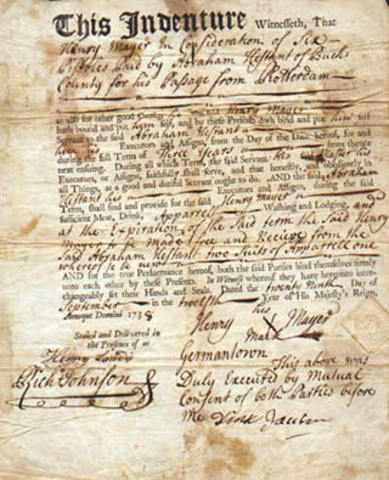 This Indenture Witnesseth, That
Henry Mayer In Consideration of Six
Pistoles Paid by Abraham Hestant of Bucks
County for his Passage from Rotterdam
as also for other good Henry Mayer
hath bound and put him self, and by these Presents doth bind and put him self
Servant to the said Abraham Hestant
his Executors and Assigns, from the Day of the Date hereof, for and
during the full Term of Three Years from thence
next ensuing. During all which Term, the said Servant his said Master his
Executors, or Assigns, faithfully shall serve, and that honestly and obediently in
all Things, as a good and dutiful Servant ought to do. AND the said Abraham
Hestant his Executors and Assigns, during the said
Term, shall find and provide for the said Henry Mayer
sufficient Meat, Drink, Apparrel Washing and Lodging, and
at the Expiration of the Said term the Said Henry
Mayer to be made free and Recieve from the
Said Abraham Hestant two Suits of Apparrell one
whereof to be new
AND for the true Performance hereof, both the said Parties bind themselves firmly
unto each other by these Presents. In Witness whereof they have hereunto inter-
changeably set their Hands and Seals. Dated the twenty Ninth Day of
September in the twelfth Year of His Majesty's Reign,
Annoque Domini 1738
Sealed and Delivered in
the Presence of us
his
Henry X Mayer
mark
Henry
Rich Johnson
Germantown
This above was
Duly Executed by Mutual
Consent of both Parties before
me